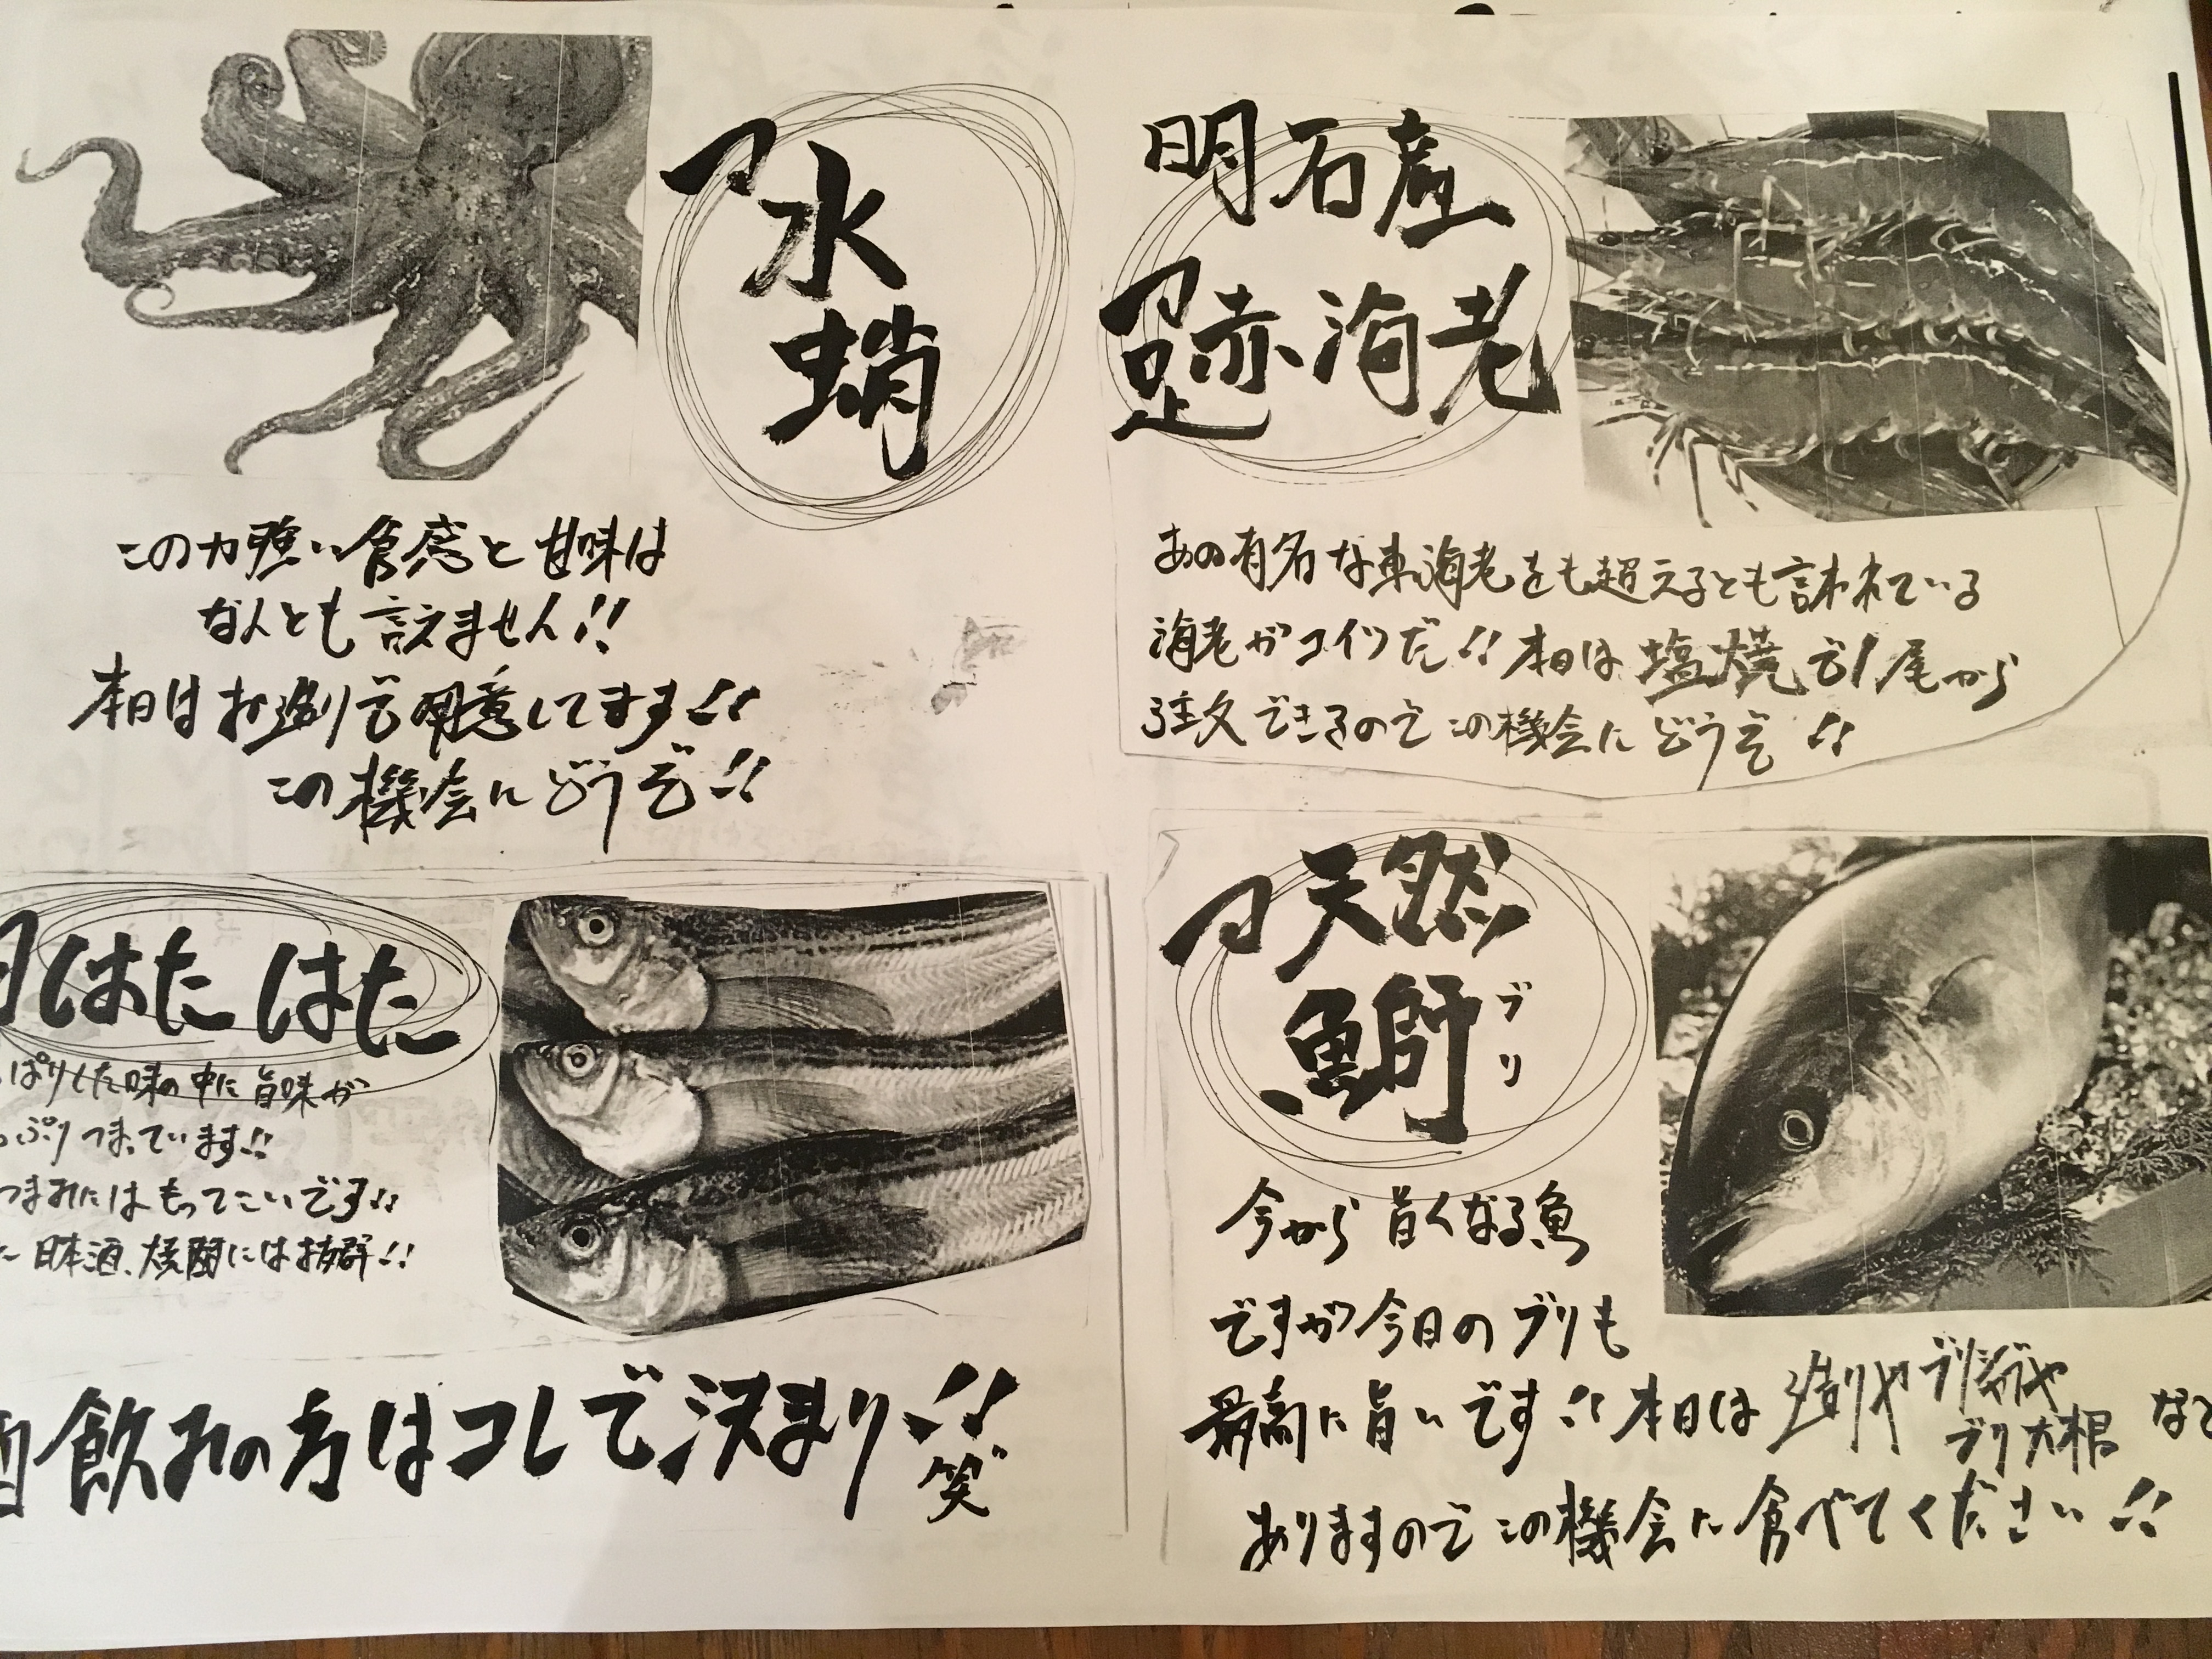 水
蛸
この力強い食感と甘味は
なんとも言えません!!
本日はお造りで用意してます!!
この機会にどうぞ!!
明石産
足赤海老
あの有名な車海老をも超えるとも言われている
海老がコイツだ!!本日は塩焼で1尾から
注文できるのでこの機会にどうぞ!!
はたはた
ぱりした味の中に旨味が
ぷりつまっています!!
つまみにはもってこいです!!
日本酒、焼酎には抜群!!
酒飲みの方はコレで決まり!!
笑
天然
鰤
ブリ
今から旨くなる魚
ですが今日のブリも
最高に旨いです!!本日は造りやブリシャブや
ブリ大根など
ありますのでこの機会に食べてください!!